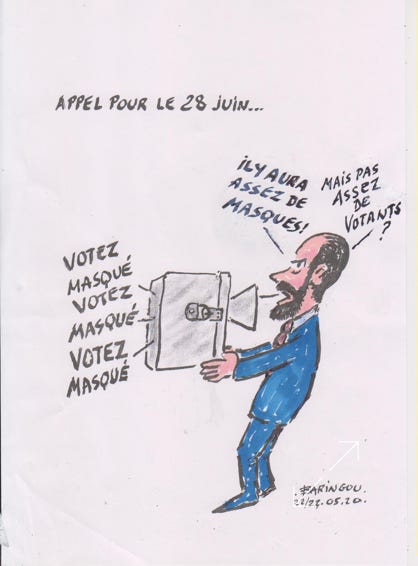 APPEL POUR LE 28 JUIN...
IL Y AURA
ASSEZ DE
MASQUES!
MAIS PAS
ASSEZ
DE
VOTANTS
?
VOTEZ
MASQUÉ
VOTEZ
MASQUÉ
VOTEZ
MASQUÉ
BARINGOU.
22/23.05.20.